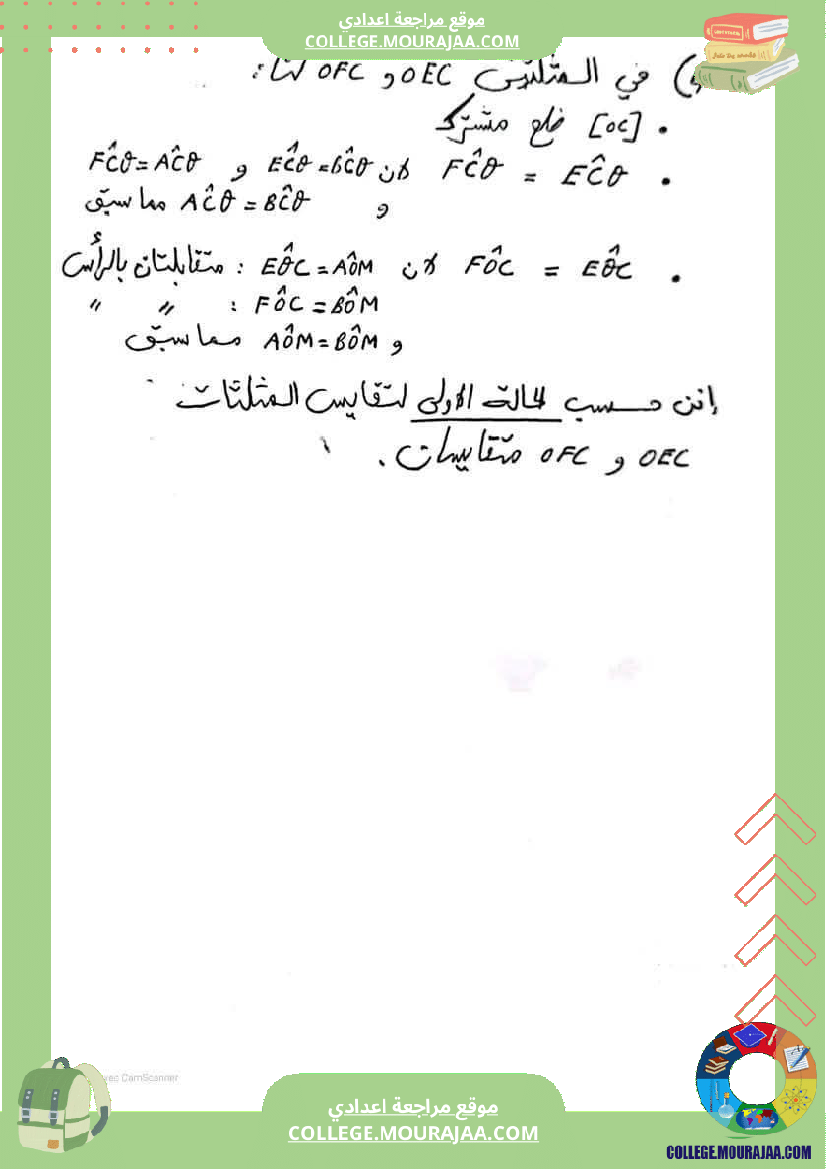 موقع مراجعة اعدادي
COLLEGE.MOURAJAA.COM
في المثلثين OEC و OFC لنا:
• [OC] ضلع مشترك
• EĈO = FĈO لان EĈO = BĈO و FĈO = AĈO
و AĈO = BĈO مما سبق
• EÔC = FÔC لان EÔC = AÔM : متقابلتان بالرأس
FÔC = BÔM : " "
و AÔM = BÔM مما سبق
إذن حسب الحالة الاولى لتقايس المثلثات
OEC و OFC متقايسان.
CamScanner
موقع مراجعة اعدادي
COLLEGE.MOURAJAA.COM
COLLEGE.MOURAJAA.COM